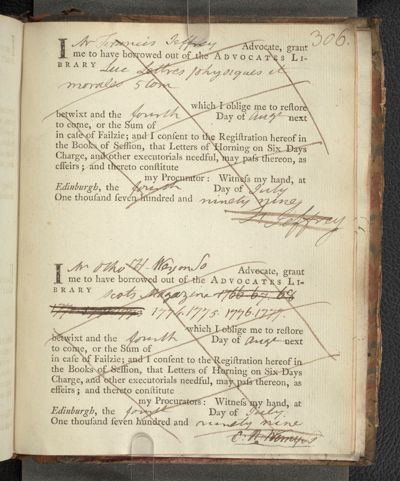 306.
I Mr Francis Jeffrey Advocate, grant
me to have borrowed out of the ADVOCATES LI-
BRARY Luc Lettres physiques et
morales 5 tom
which I oblige me to reſtore
betwixt and the fourth Day of Augt next
to come, or the Sum of
in caſe of Failzie; and I conſent to the Regiſtration hereof in
the Books of Seſſion, that Letters of Horning on Six Days
Charge, and other executorials needful, may paſs thereon, as
effeirs; and thereto conſtitute
my Procurator: Witneſs my hand, at
Edinburgh, the fourth Day of July
One thouſand ſeven hundred and ninety nine
F. Jeffrey
I Mr Otho H. Advocate, grant
me to have borrowed out of the ADVOCATES LI-
BRARY Scots Magazine 1766 67 68
1774. 1775. 1776. 1777.
which I oblige me to reſtore
betwixt and the fourth Day of Augt next
to come, or the Sum of
in caſe of Failzie; and I conſent to the Regiſtration hereof in
the Books of Seſſion, that Letters of Horning on Six Days
Charge, and other executorials needful, may paſs thereon, as
effeirs; and thereto conſtitute
my Procurators: Witneſs my hand, at
Edinburgh, the fourth Day of July
One thouſand ſeven hundred and ninety nine